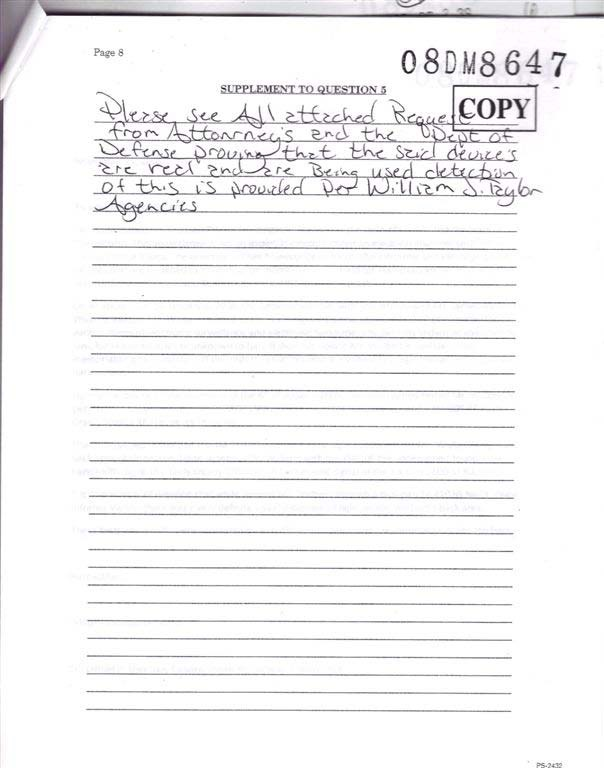 Page 8
08DM8647
SUPPLEMENT TO QUESTION 5
COPY
Please see All attached Reques
from Attonrney's and the Dept of
Defense proving that the said device's
are real and are Being used detection
of this is provided Per William J. Taylor
Agencies
PS-2432